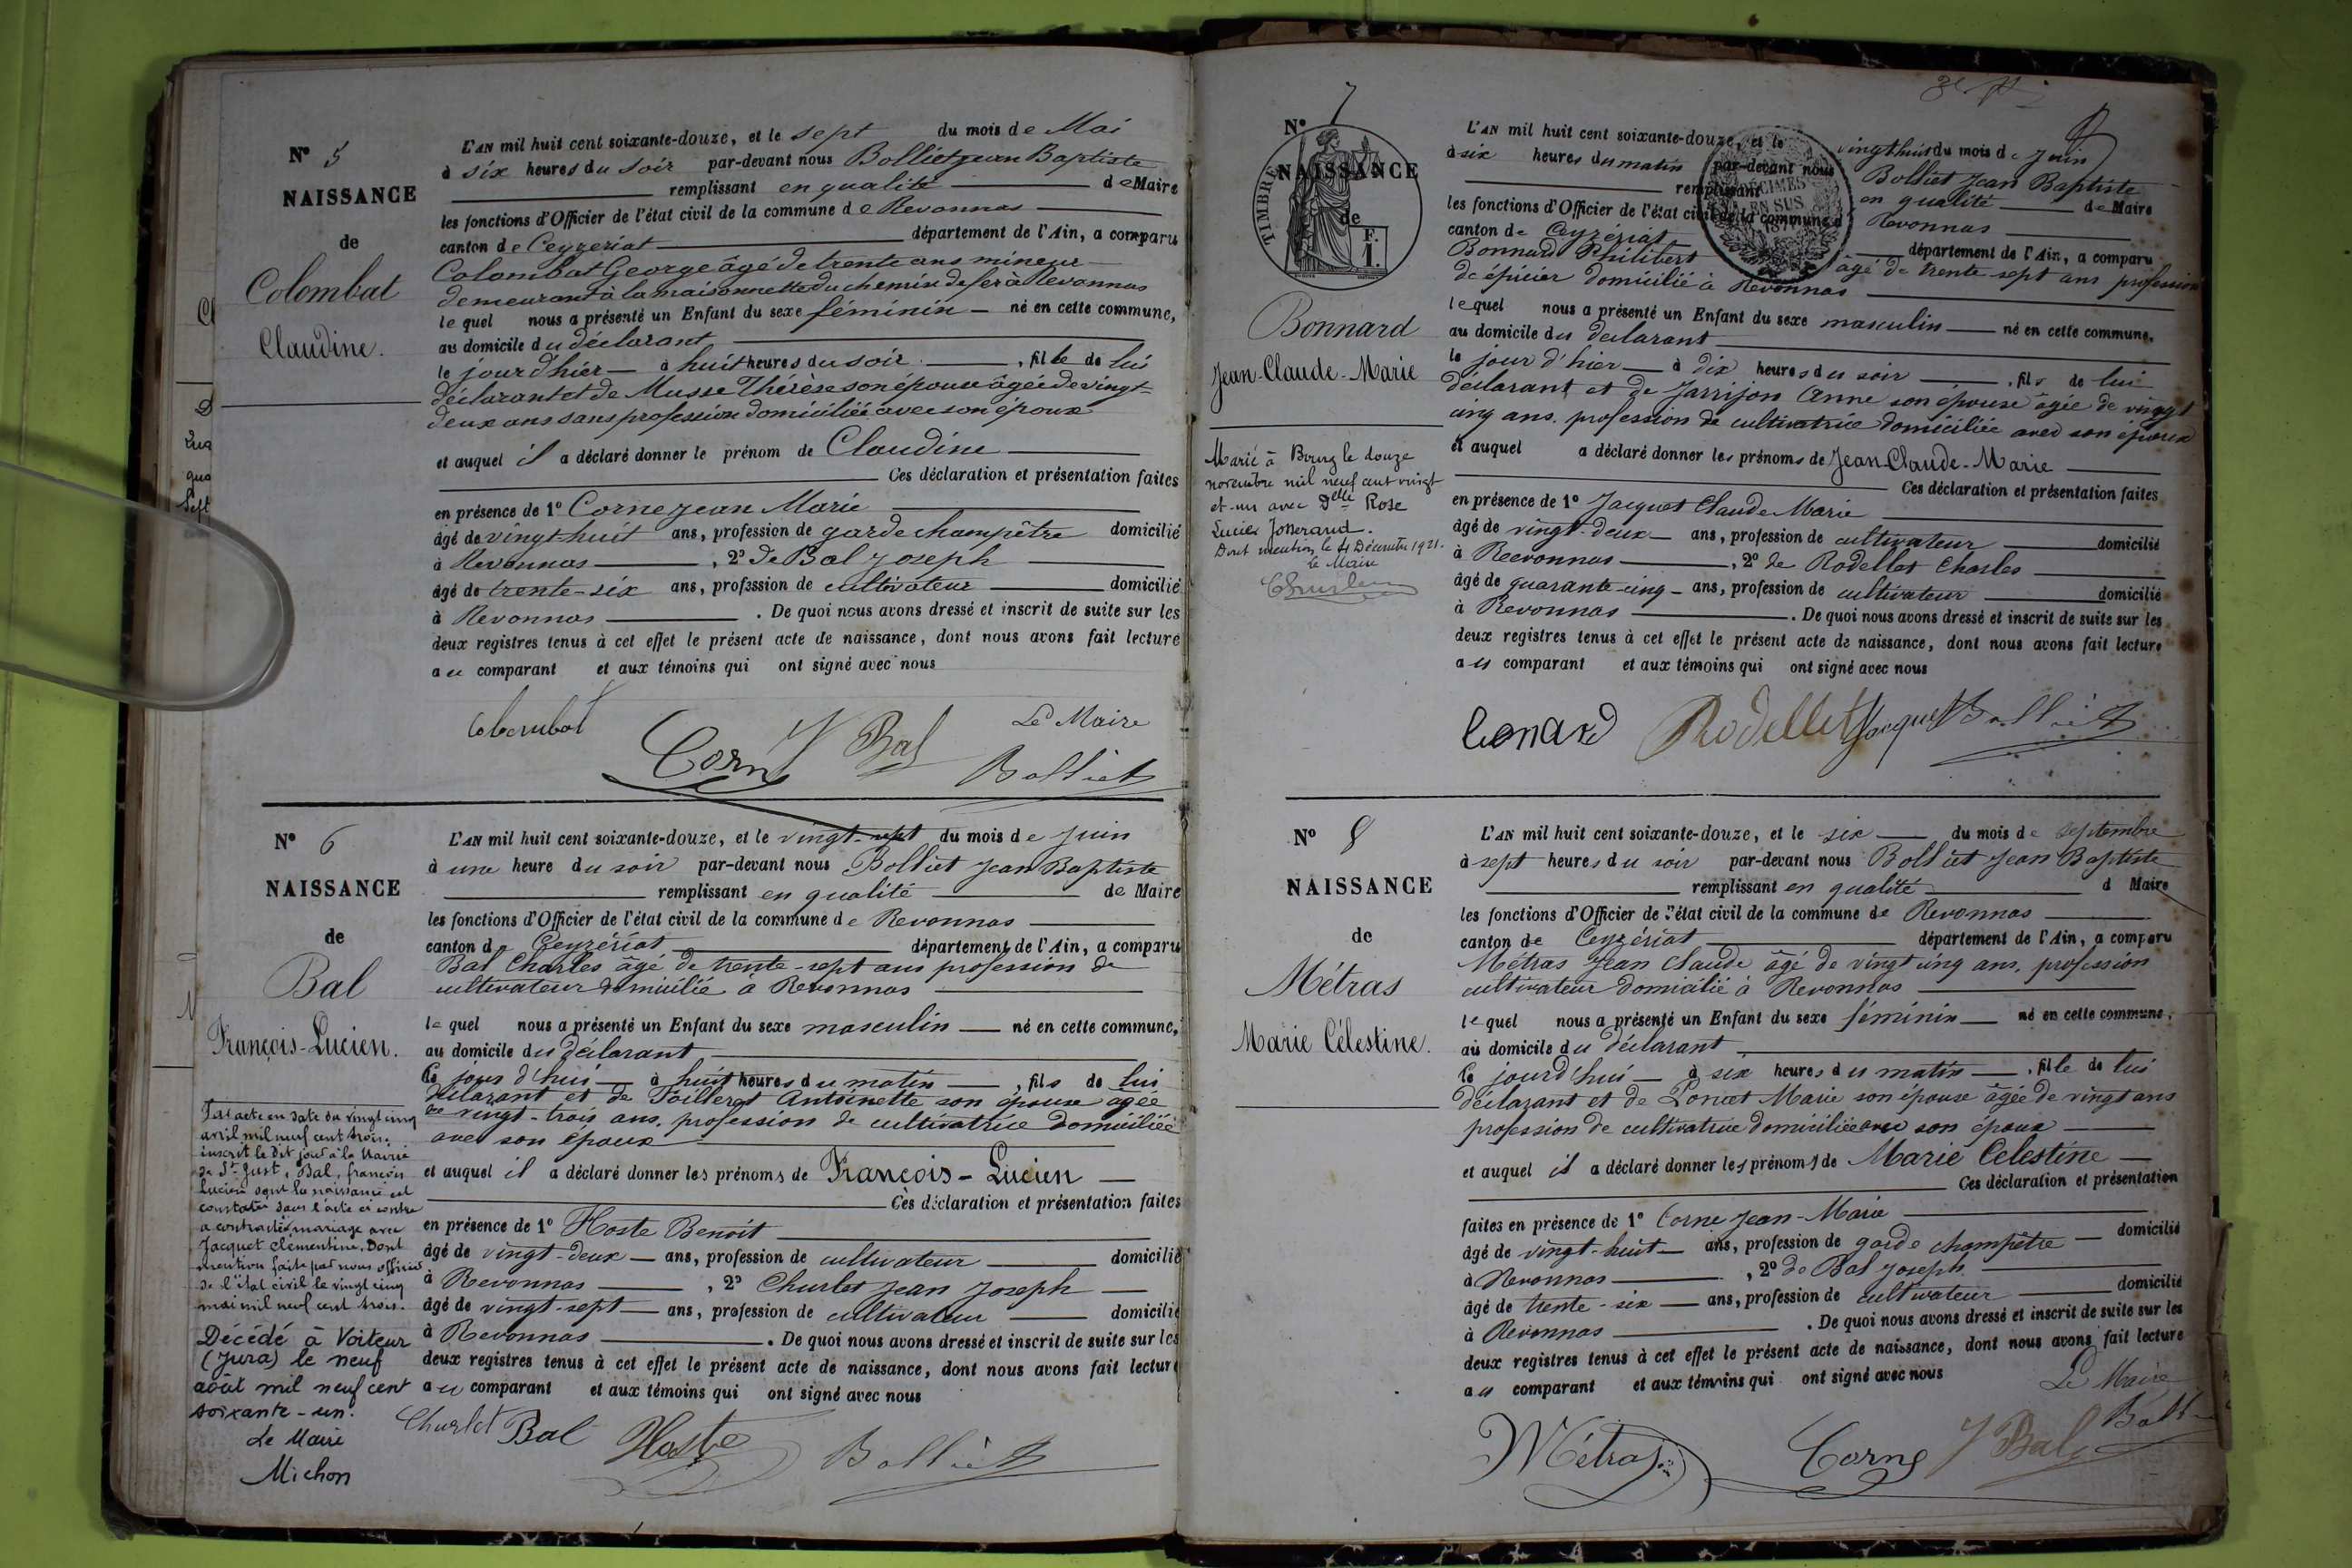 N° 5
NAISSANCE
de
Colombat
Claudine.
L'AN mil huit cent soixante-douze, et le sept du mois de Mai
à six heures du soir par-devant nous Bolliet Jean Baptiste
remplissant en qualité de Maire
les fonctions d'Officier de l'état civil de la commune de Revonnas
canton de Ceyzeriat département de l'Ain, a comparu
Colombat George âgé de trente ans mineur
demeurant à la maisonnette du chemin de fer à Revonnas
lequel nous a présenté un Enfant du sexe féminin né en cette commune,
au domicile du déclarant
le jour d'hier à huit heures du soir , fille de lui
déclarant et de Musse Thérèse son épouse âgée de vingt-
deux ans sans profession domiciliée avec son époux
et auquel il a déclaré donner le prénom de Claudine
Ces déclaration et présentation faites
en présence de 1° Corne Jean Marie
âgé de vingt-huit ans, profession de garde champêtre domicilié
à Revonnas , 2° de Bal Joseph
âgé de trente-six ans, profession de cultivateur domicilié
à Revonnas . De quoi nous avons dressé et inscrit de suite sur les
deux registres tenus à cet effet le présent acte de naissance, dont nous avons fait lecture
au comparant et aux témoins qui ont signé avec nous
Colombat Corne J Bal Le Maire
Bolliet
N° 6
NAISSANCE
de
Bal
François-Lucien.
Par acte en date du vingt cinq
avril mil neuf cent trois,
inscrit le dit jour à la Mairie
de St Just, Bal, françois
Lucien dont la naissance est
constatée dans l'acte ci contre
a contracté mariage avec
Jacquet Clémentine. Dont
mention faite par nous officier
de l'état civil le vingt cinq
mai mil neuf cent trois.
Décédé à Voiteur
(Jura) le neuf
août mil neuf cent
soixante-un.
Le Maire
Michon
L'AN mil huit cent soixante-douze, et le vingt-sept du mois de Juin
à une heure du soir par-devant nous Bolliet Jean Baptiste
remplissant en qualité de Maire
les fonctions d'Officier de l'état civil de la commune de Revonnas
canton de Ceyzériat département de l'Ain, a comparu
Bal Charles âgé de trente-sept ans profession de
cultivateur domicilié à Revonnas
lequel nous a présenté un Enfant du sexe masculin né en cette commune,
au domicile du déclarant
le jour d'hui à huit heures du matin , fils de lui
déclarant et de Poilleret Antoinette son épouse agée
de vingt-trois ans, profession de cultivatrice domiciliée
avec son époux
et auquel il a déclaré donner les prénoms de François-Lucien
Ces déclaration et présentation faites
en présence de 1° Hoste Benoit
âgé de vingt-deux ans, profession de cultivateur domicilié
à Revonnas , 2° Churlet Jean Joseph
âgé de vingt-sept ans, profession de cultivateur domicilié
à Revonnas . De quoi nous avons dressé et inscrit de suite sur les
deux registres tenus à cet effet le présent acte de naissance, dont nous avons fait lecture
au comparant et aux témoins qui ont signé avec nous
Churlet Bal Hoste Bolliet
N° 7
TIMBRE
NAISSANCE
de
F.
1.
Bonnard
Jean-Claude-Marie
Marié à Bourg le douze
novembre mil neuf cent vingt
et-un avec Delle Rose
Lucie Josserand.
Dont mention le 4 Décembre 1921.
le Maire
Churlet
L'AN mil huit cent soixante-douze, et le vingt huit du mois de Juin
à six heures du matin par-devant nous Bolliet Jean Baptiste
remplissant en qualité de Maire
les fonctions d'Officier de l'état civil de la commune d Revonnas
DÉCIMES
EN SUS
canton de Ceyzériat département de l'Ain, a comparu
Bonnard Philibert âgé de trente-sept ans profession
de épicier domicilié à Revonnas
lequel nous a présenté un Enfant du sexe masculin né en cette commune,
au domicile du déclarant
le jour d'hier à dix heures du soir , fils de lui
déclarant et de Jarrijon Anne son épouse âgée de vingt
cinq ans, profession de cultivatrice domiciliée avec son époux
et auquel a déclaré donner les prénoms de Jean-Claude-Marie
Ces déclaration et présentation faites
en présence de 1° Jacquet Claude Marie
âgé de vingt-deux ans, profession de cultivateur domicilié
à Revonnas , 2° de Rodellet Charles
âgé de quarante-cinq ans, profession de cultivateur domicilié
à Revonnas . De quoi nous avons dressé et inscrit de suite sur les
deux registres tenus à cet effet le présent acte de naissance, dont nous avons fait lecture
au comparant et aux témoins qui ont signé avec nous
bonard Rodellet Jacquet Bolliet
N° 8
NAISSANCE
de
Métras
Marie Célestine.
L'AN mil huit cent soixante-douze, et le six du mois de septembre
à sept heures du soir par-devant nous Bolliet Jean Baptiste
remplissant en qualité d Maire
les fonctions d'Officier de l'état civil de la commune de Revonnas
canton de Ceyzériat département de l'Ain, a comparu
Métras Jean Claude âgé de vingt cinq ans, profession
cultivateur domicilié à Revonnas
lequel nous a présenté un Enfant du sexe féminin né en cette commune,
au domicile du déclarant
le jourd'hui à six heures du matin , fille de lui
déclarant et de Poncet Marie son épouse âgée de vingt ans
profession de cultivatrice domiciliée avec son époux
et auquel il a déclaré donner les prénoms de Marie Celestine
Ces déclaration et présentation
faites en présence de 1° Corne Jean-Marie
âgé de vingt-huit ans, profession de garde champêtre domicilié
à Revonnas , 2° de Bal Joseph
âgé de trente-six ans, profession de cultivateur domicilié
à Revonnas . De quoi nous avons dressé et inscrit de suite sur les
deux registres tenus à cet effet le présent acte de naissance, dont nous avons fait lecture
au comparant et aux témoins qui ont signé avec nous
Le Maire
Métras Corne J Bal Bolliet